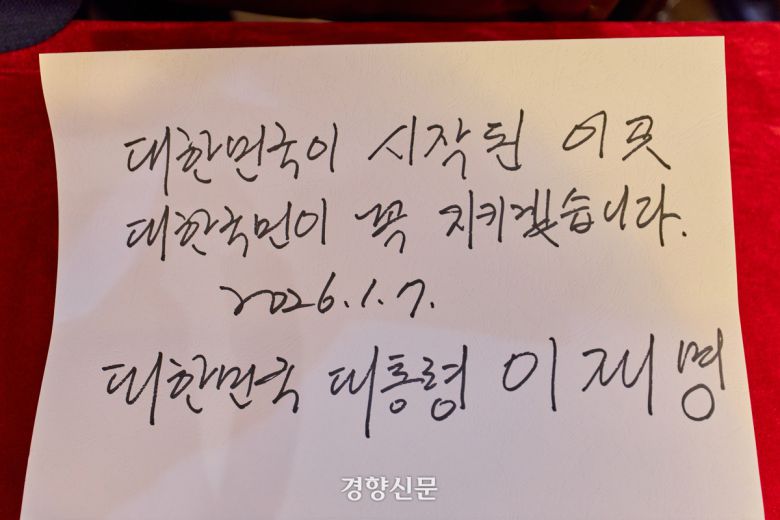 대한민국이 시작된 이곳
대한국민이 꼭 지키겠습니다.
2026.1.7.
대한민국 대통령 이재명
경향신문